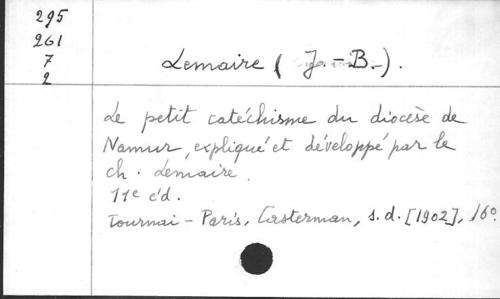 295
261
7
2
Lemaire ( J.-B.-) .
Le petit catéchisme du diocèse de
Namur, expliqué et développé par le
ch. Lemaire.
11e éd.
Tournai - Paris, Casterman, s.d. [1902], 16o.